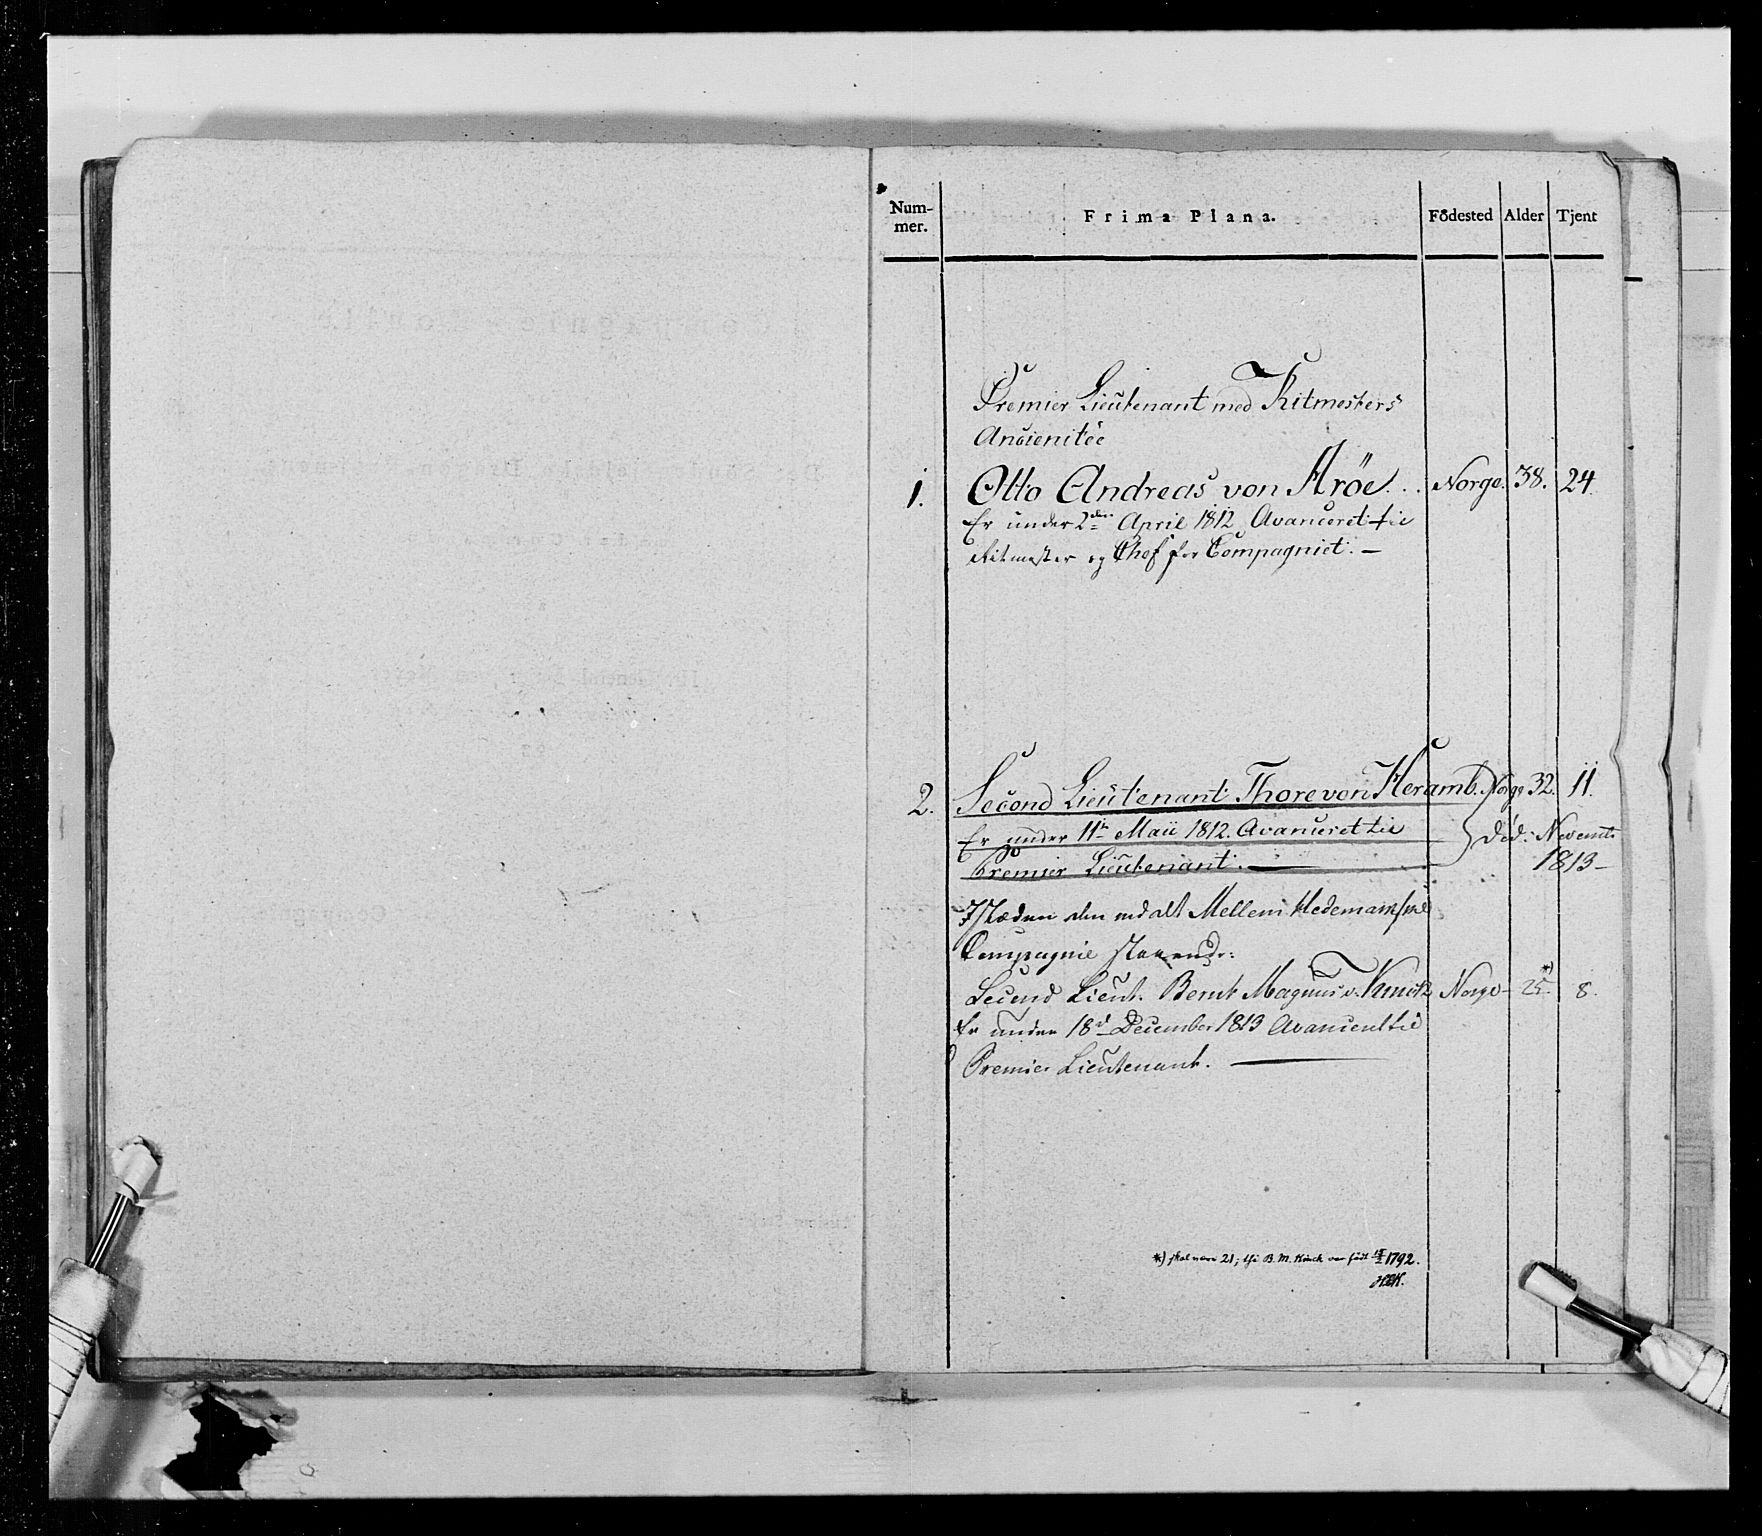 Num-
mer.
Frima Plana.
Födested
Alder
Tjent
Premier Lieutenant med Ritmesters
Ancienitée
1. Otto Andreas von Aröe... Norge. 38. 24.
Er under 2den April 1812 Avanceret til
Ritmester og Chef for Compagniet. —
2. Second Lieutenant Thore von Heramb. Norge 32. 11.
Er under 11te Maii 1812. Avanceret til
Premier Lieutenant. —
Död: Novembr
1813 –
Istæden den ved alt Mellem Hedemarkske
Compagnie staaende:
Second Lieut. Bernt Magnus v. Norge – 25 *) 8.
Er under 18d December 1813 Avanceret til
Premier Lieutenant. —
*) skal være 21; thi B. M. Kinck var född 1792.
HEK.